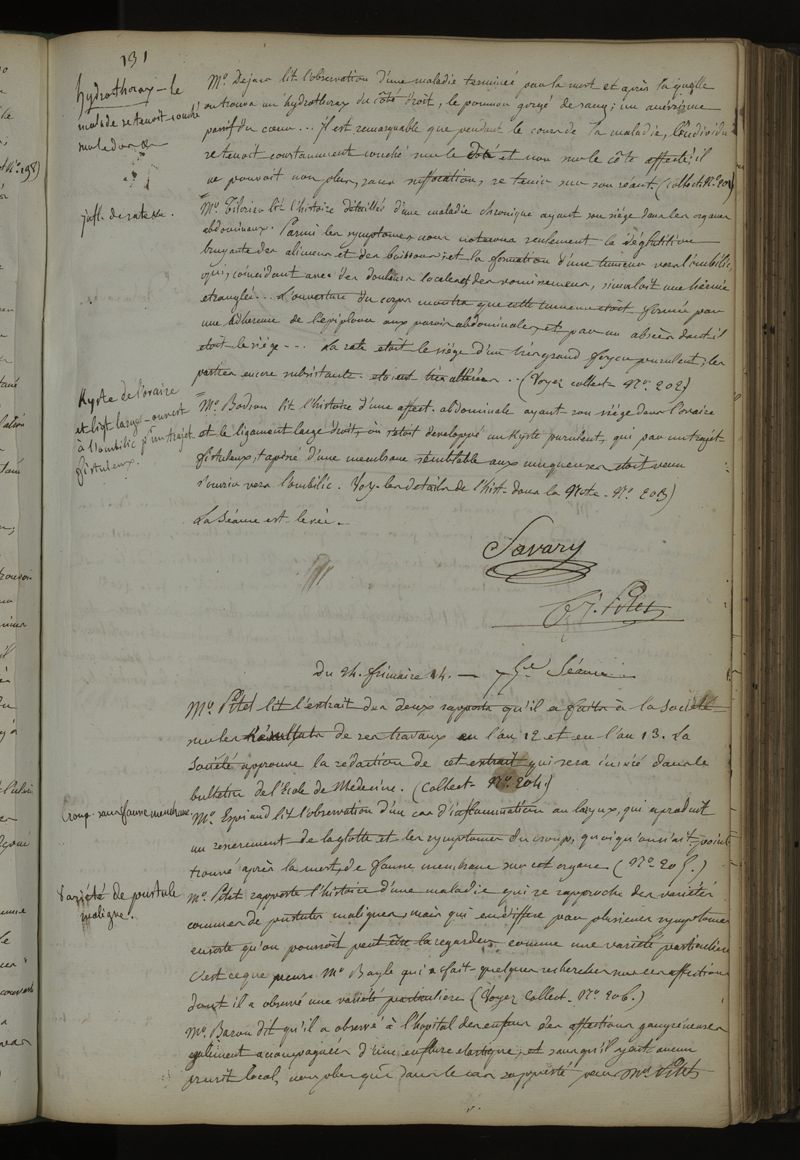 131
hydrothorax - le
malade se tenoit couché
sur le dos
Mr. Dejaer lit l'observation d'une maladie terminée par la mort et après laquelle
on trouva un hydrothorax du côté droit, le poumon gorgé de sang; un anévrisme
passif du cœur... il est remarquable que pendant le cours de la maladie, l'individu
se tenoit constamment couché sur le dos et non sur le côté affecté; il
ne pouvoit non plus, sans suffocation, se tenir sur son séant (collect. No. 201)
infl. de rate
Mr. lit l'histoire détaillée d'une maladie chronique ayant son siége dans les organes
abdominaux. Parmi les symptomes nous noterons seulement la déglutition
bruyante des alimens et des boissons; et la formation d'une tumeur vers l'ombilic,
qui, coincidant avec des douleurs locales et des vomissemens, simuloit une hernie
etranglée... L'ouverture du corps montra que cette tumeur étoit formée par
une adherence de l'épiploon aux parois abdominales, et par un abscès dont il
etoit le siége... La rate etoit le siége d'un très grand foyer purulent; les
parties encore subsistantes etoient très altérées.. (Voyez collect. No. 202)
Kyste de l'ovaire
et ligt large - ouvert
à l'ombilic pr un trajet
fistuleux.
Mr. lit l'histoire d'une affect. abdominale ayant son siége dans l'ovaire
et le ligament large droit, où s'etoit developpé un Kyste purulent, qui par un trajet
fistuleux, tapissé d'une membrane semblable aux muqueuses etoit venu
s'ouvrir vers l'ombilic. Voy. les details de l'hist. dans la Note. No. 203)
La séance est levée.
Savary
Pitet
Du 24. frimaire 14. — Séance
Mr. Pitet lit l'extrait des deux rapports qu'il a faits à la Société
sur les Résultats de ses travaux en l'an 12 et en l'an 13. La
Société approuve la redaction de cet extrait qui sera inséré dans le
bulletin de l'Ecole de Médecine. (Collect. No. 204)
Croup sans fausse membrane
Mr. lit l'observation d'un cas d'inflammation au larynx, qui a produit
un resserrement de la glotte et les symptomes du croup, quoiqu'on n'ait point
trouvé après la mort, de fausse membrane sur cet organe (No. 205.)
Variété de pustule
maligne.
Mr. Pitet rapporte l'histoire d'une maladie qui se rapproche des variétés
connues de pustules malignes, mais qui en diffère par plusieurs symptomes
ensorte qu'on pourroit peut être la regarder comme une variété particulière
C'est ce que pense Mr. Bayle qui a fait quelques recherches sur ces affections
dont il a observé une variété particulière (Voyez Collect. No. 206.)
Mr. Baron dit qu'il a observé à l'hopital des enfans des affections gangréneuses
egalement accompagnées d'une enflure elastique, et sans qu'il y ait aucun
prurit local, non plus que dans le cas rapporté par Mr. Pitet